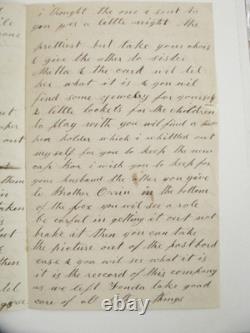 i thought the one i sent to
you per a little wright the
prettiest but take your chois
& give the other to sister
Stella & the card wil tel
her what it is & you wil
find some jewelry for yourself
& little lockets for the children
to play with you will find a
pen holder which i whittled out
myself for you to keep the
one i wish to keep for
your husband the other you give
to Brother Orrin in the bottom
of the box you wil see a role
be carful in getting it out not
brake it then you can take
the picture out of the postbord
case & you wil see what it is
it is the reccord of this company
as we left Fonda take good
care of all of the things